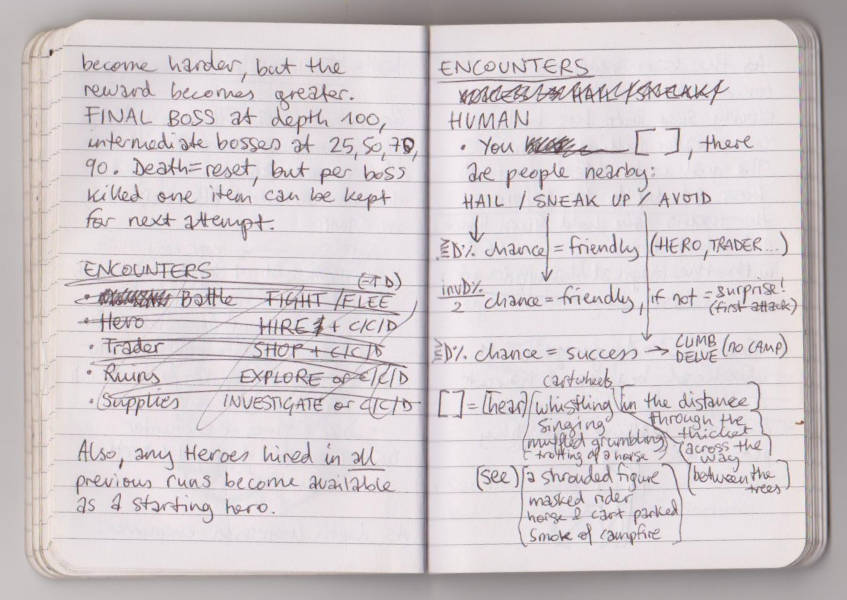 become harder, but the
reward becomes greater.
FINAL BOSS at depth 100,
intermediate bosses at 25, 50, 75,
90. Death=reset, but per boss
killed one item can be kept
for next attempt.
ENCOUNTERS
(-↑D)
• Battle FIGHT / FLEE
• Hero HIRE + C/C/D
• Trader SHOP + C/C/D
• Ruins EXPLORE or C/C/D
• Supplies INVESTIGATE or C/C/D
Also, any Heroes hired in all
previous runs become available
as a starting hero.
ENCOUNTERS
HAIL / SNEAK /
HUMAN
• You [ ], there
are people nearby:
HAIL / SNEAK UP / AVOID
D% chance = friendly (HERO, TRADER...)
invD%/2 chance = friendly, if not = surprise!
(first attack)
D% chance = success → CLIMB
DELVE (NO CAMP)
cartwheels
[ ] = (hear) (whistling) (in the distance)
singing through the
muffled grumbling thicket
trotting of a horse (across the
way
(see) (a shrouded figure (between the
trees)
masked rider
horse & cart parked
smoke of campfire